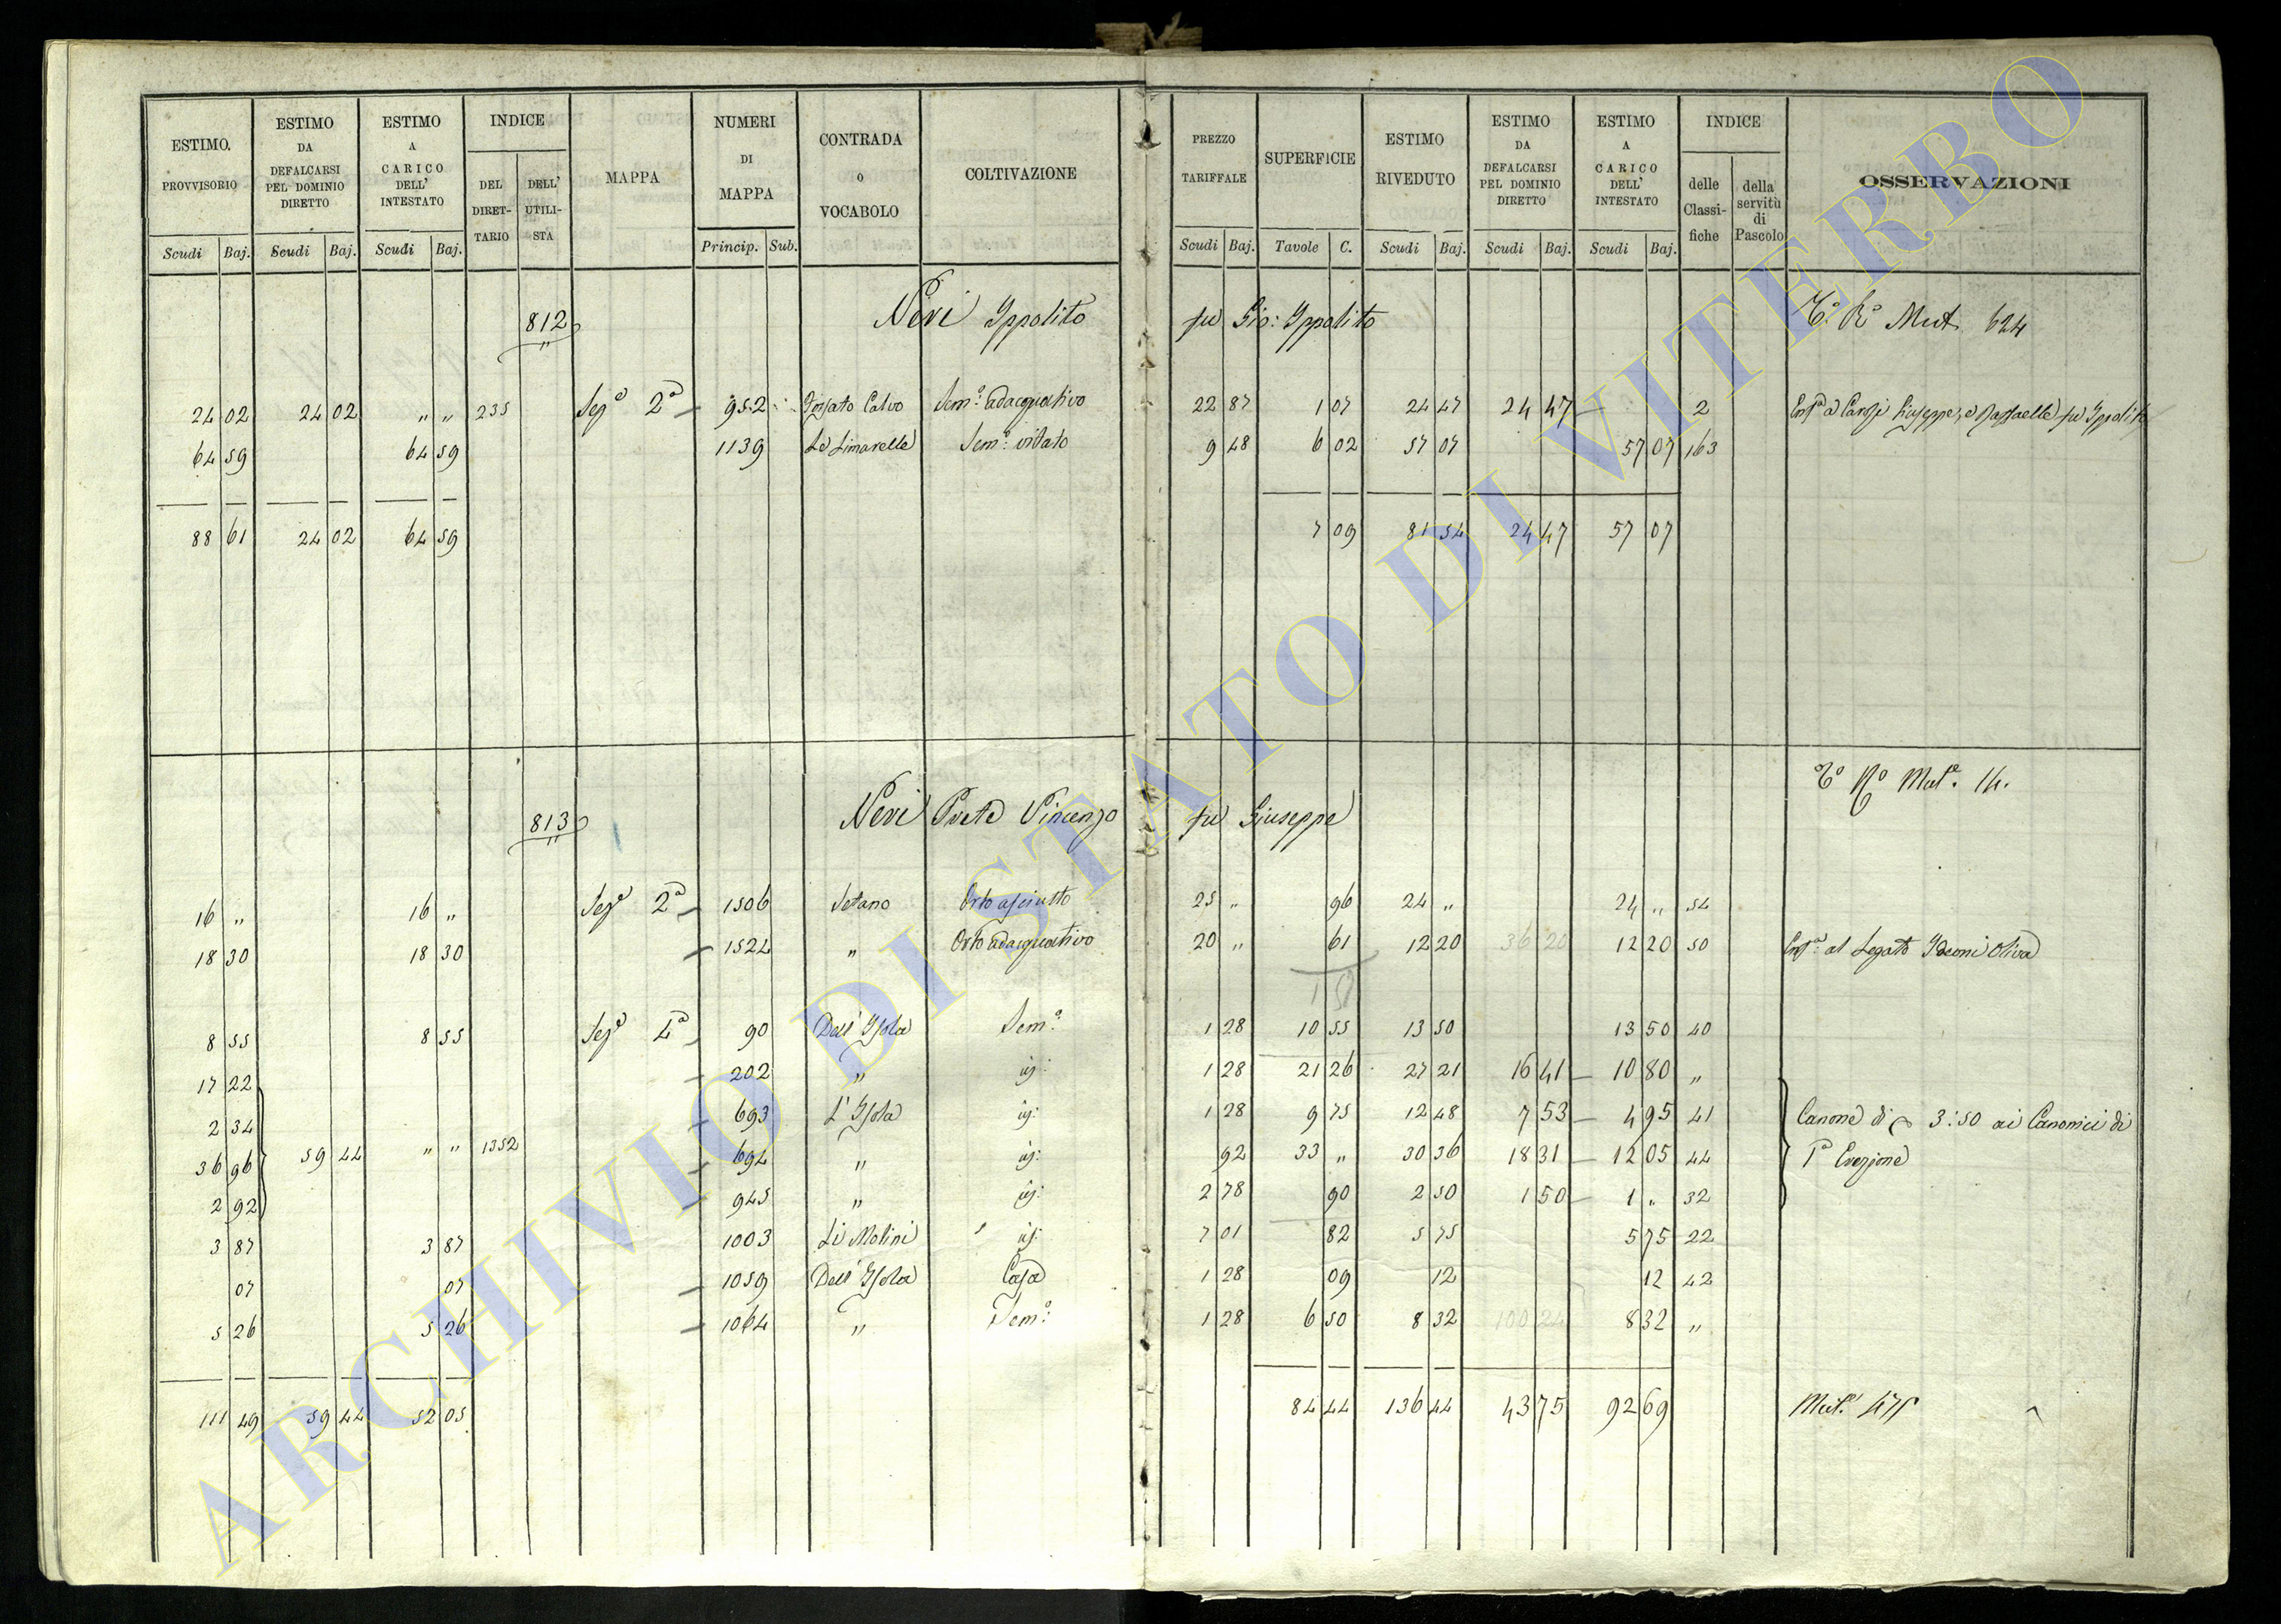 ESTIMO. PROVVISORIO
ESTIMO DA DEFALCARSI PEL DOMINIO DIRETTO
ESTIMO A CARICO DELL' INTESTATO
INDICE
DEL DIRETTARIO
DELL' UTILISTA
MAPPA
NUMERI DI MAPPA
CONTRADA O VOCABOLO
COLTIVAZIONE
PREZZO TARIFFALE
SUPERFICIE
ESTIMO RIVEDUTO
ESTIMO DA DEFALCARSI PEL DOMINIO DIRETTO
ESTIMO A CARICO DELL' INTESTATO
INDICE
delle Classifiche
della servitù di Pascolo
OSSERVAZIONI
Scudi Baj. Scudi Baj. Scudi Baj. Princip. Sub. Scudi Baj. Tavole C. Scudi Baj. Scudi Baj. Scudi Baj.
812 Nevi Ippolito fu Gio: Ippolito Mut. 624
24 02 24 02 " " 235 Sezᵉ 2ª 952 Fossato Calvo Semº adacquativo 22 87 1 07 24 47 24 47 2 Giuseppe, e Raffaelle fu Ippolito
64 59 64 59 1139 Le Limarelle Semº vitato 9 48 6 02 57 07 57 07 163
88 61 24 02 64 59 7 09 81 54 24 47 57 07
813 Nevi Prete Vincenzo fu Giuseppe Mutᵉ. 14.
16 " 16 " Sezᵉ 2ª 1506 Setano Orto asciutto 25 " 96 24 " 24 " 54
18 30 18 30 1524 " Orto adacquativo 20 " 61 12 20 36 20 12 20 50 al Legato Oliva
8 55 8 55 Sezᵉ 4ª 90 Dell' Isola Semº 1 28 10 55 13 50 13 50 40
17 22 202 " id: 1 28 21 26 27 21 16 41 10 80 "
2 34 693 L' Isola id: 1 28 9 75 12 48 7 53 4 95 41 Canone di 3:50 ai Canonici di
36 96 59 44 " " 1352 694 " id: 92 33 " 30 36 18 31 12 05 44 1ª Erezione
2 92 945 " id: 2 78 90 2 50 1 50 1 " 32
3 87 3 87 1003 Li Molini id: 7 01 82 5 75 5 75 22
07 07 1059 Dell' Isola Casa 1 28 09 12 12 42
5 26 5 26 1064 " Semº 1 28 6 50 8 32 100 24 8 32 "
111 49 59 44 52 05 84 44 136 44 43 75 92 69 Mutᵉ 475
ARCHIVIO DI STATO DI VITERBO